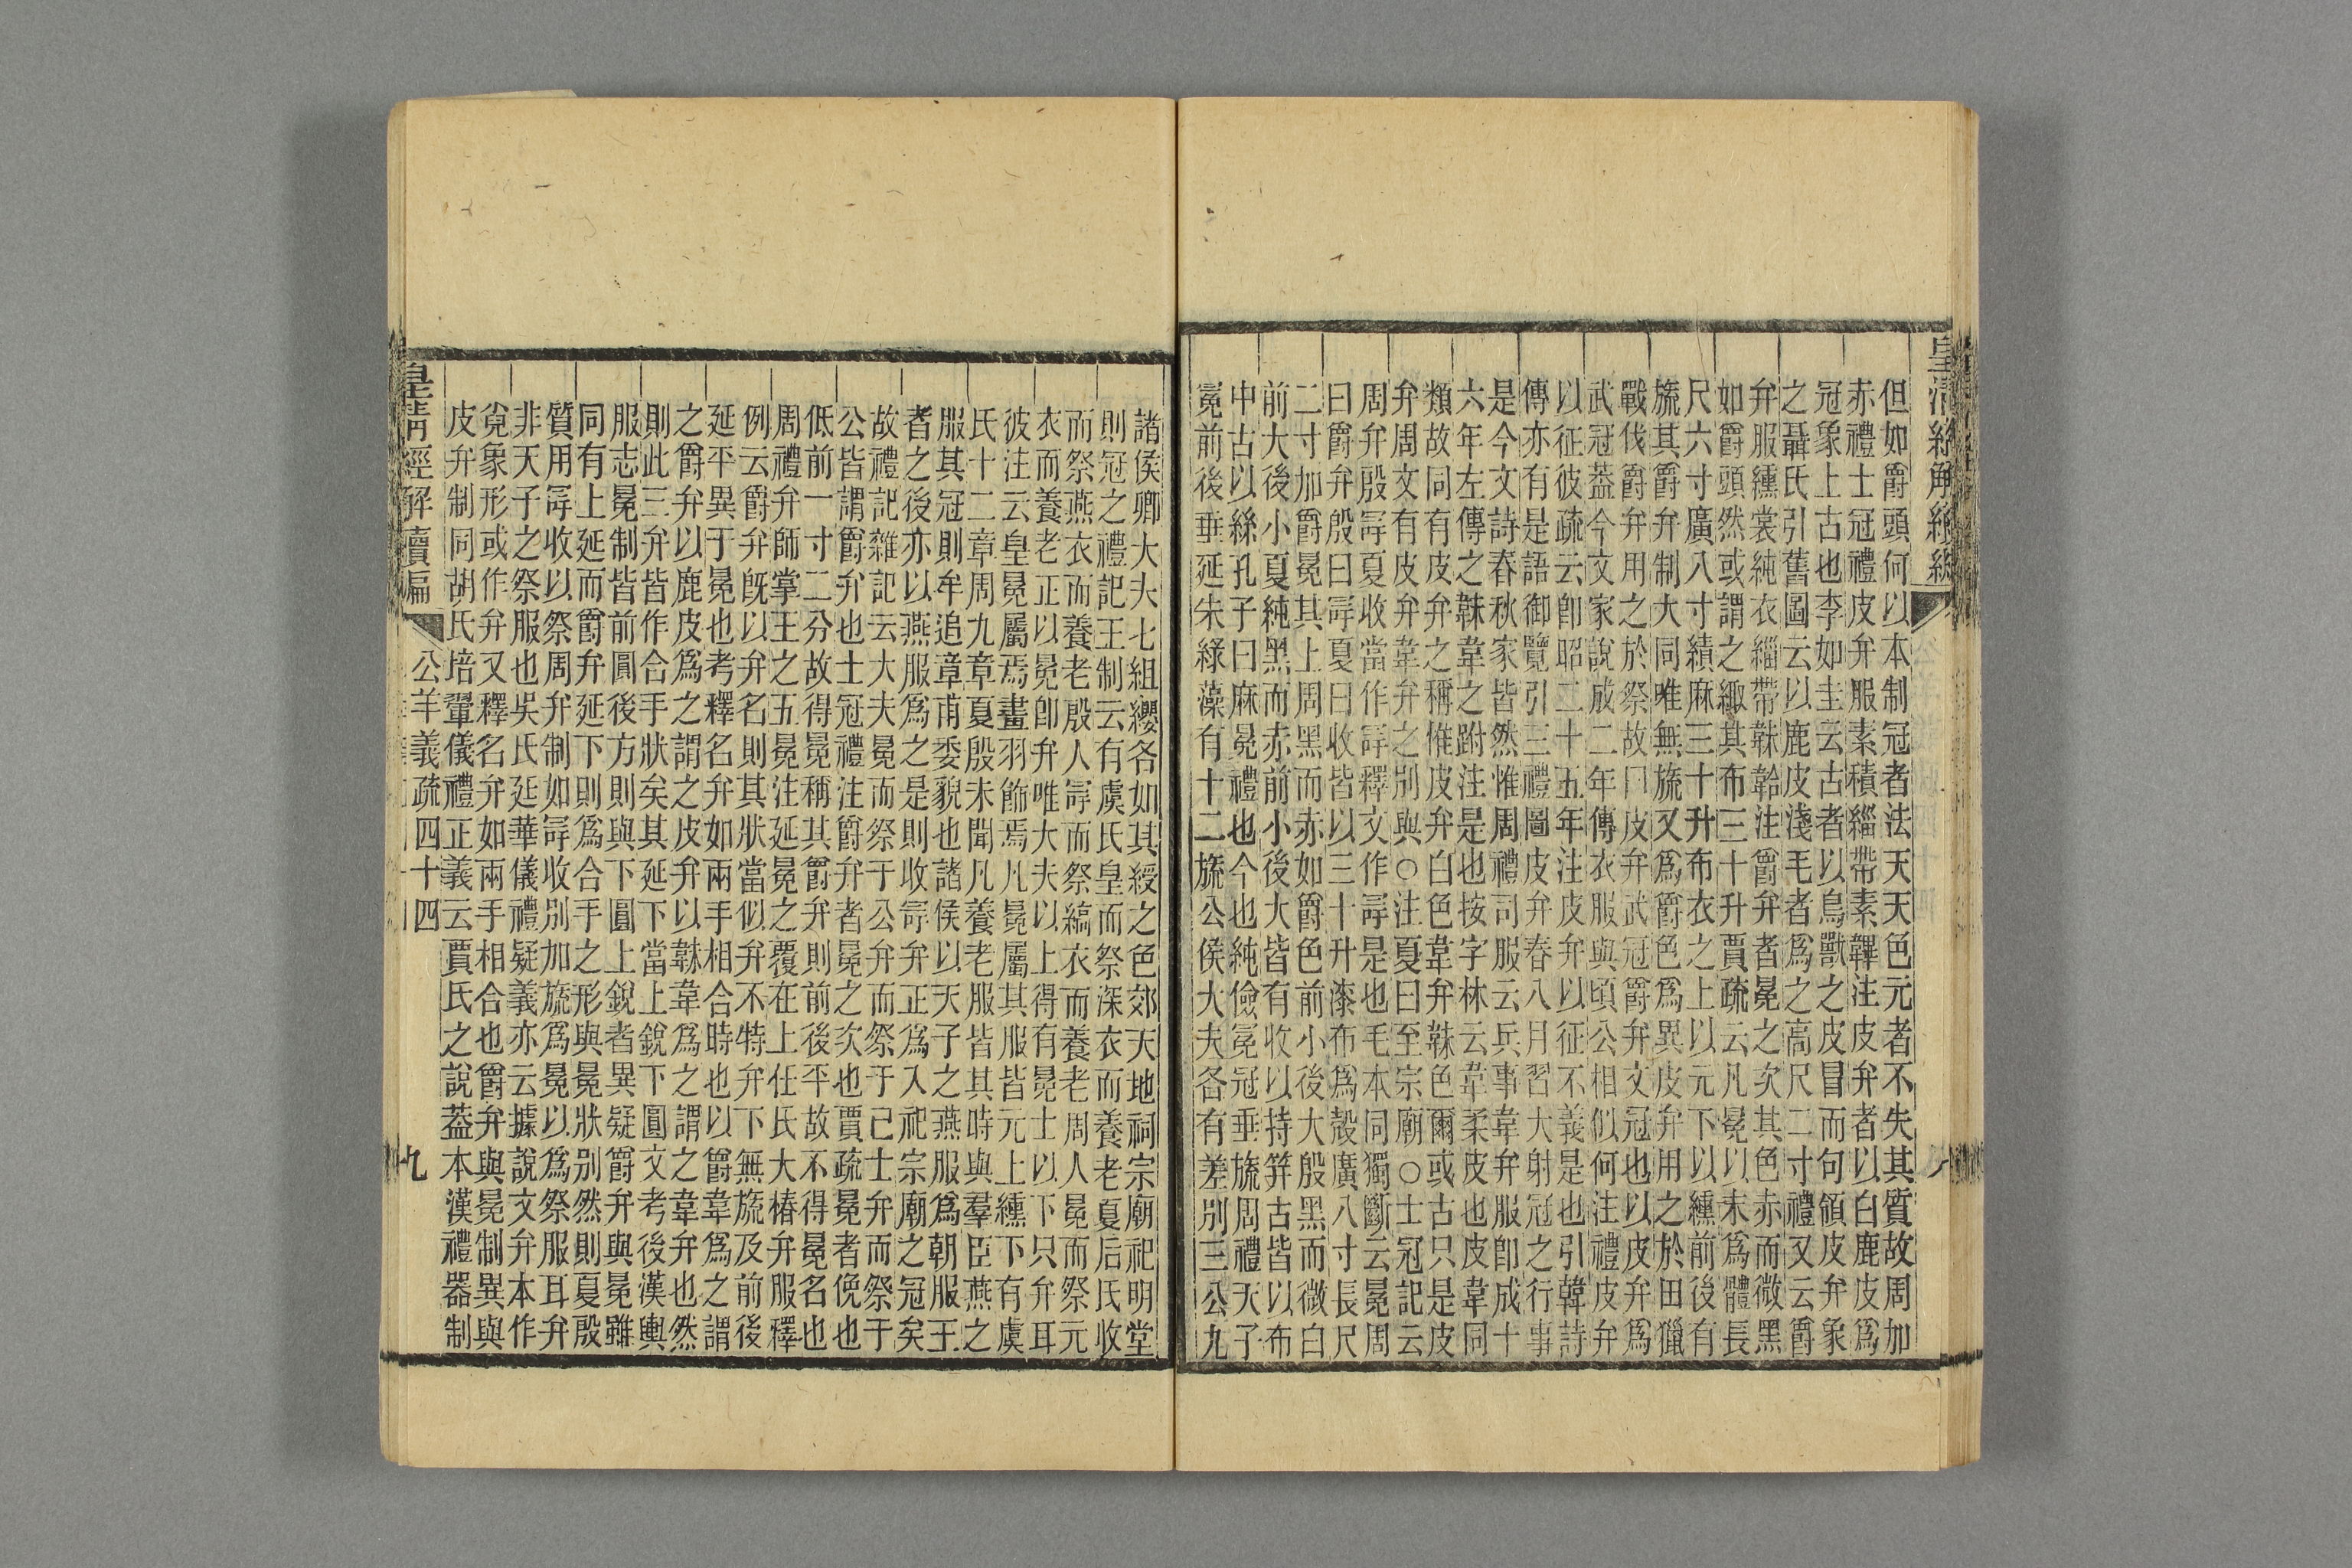 皇清經解續編
但如爵頭何以本制冠者法天天色元者不失其質故周加
赤禮士冠禮皮弁服素積緇帶素韠注皮弁者以白鹿皮爲
冠象上古也李如圭云古者以鳥獸之皮冒而句領皮弁象
之聶氏引舊圖云以鹿皮淺毛者爲之高尺二寸禮又云爵
弁服纁裳純衣緇帶韎韐注爵弁者冕之次其色赤而微黑
如爵頭然或謂之緅其布三十升賈疏云凡冕以木爲體長
尺六寸廣八寸績麻三十升布衣之上以元下以纁前後有
旒其爵弁制大同唯無旒又爲爵色爲異皮弁用之於田獵
戰伐爵弁用之於祭故曰皮弁武冠爵弁文冠也以皮弁爲
武冠葢今文家說成二年傳衣服與頃公相似何注禮皮弁
以征彼疏云卽昭二十五年注皮弁以征不義是也引韓詩
傳亦有是語御覽引三禮圖皮弁春八月習大射冠之行事
是今文詩春秋家皆然惟周禮司服云兵事韋弁服卽成十
六年左傳之韎韋之跗注是也按字林云韋柔皮也皮韋同
類故同有皮弁之稱惟皮弁白色韋弁韎色爾或古只是皮
弁周文有皮弁韋弁之別與○注夏曰至宗廟○士冠記云
周弁殷冔夏收當作冔釋文作冔是也毛本同獨斷云冕周
曰爵弁殷曰冔夏曰收皆以三十升漆布爲殼廣八寸長尺
二寸加爵冕其上周黑而赤如爵色前小後大殷黑而微白
前大後小夏純黑而赤前小後大皆有收以持笄古皆以布
中古以絲孔子曰麻冕禮也今也純儉冕冠垂旒周禮天子
冕前後垂延朱綠藻有十二旒公侯大夫各有差別三公九
諸侯卿大夫七組纓各如其綬之色郊天地祠宗廟祀明堂
則冠之禮記王制云有虞氏皇而祭深衣而養老夏后氏收
而祭燕衣而養老殷人冔而祭縞衣而養老周人冕而祭元
衣而養老正以冕卽弁唯大夫以上得有冕士以下只弁耳
彼注云皇冕屬焉畫羽飾焉凡冕屬其服皆元上纁下有虞
氏十二章周九章夏殷未聞凡養老服皆其時與羣臣燕之
服其冠則牟追章甫委貌也諸侯以天子之燕服爲朝服王
者之後亦以燕服爲之是則收冔弁正爲入祀宗廟之冠矣
故禮記雜記云大夫冕而祭于公弁而祭于己士弁而祭于
公皆謂爵弁也士冠禮注爵弁者冕之次也賈疏冕者俛也
低前一寸二分故得冕稱其爵弁則前後平故不得冕名也
周禮弁師掌王之五冕注延冕之覆在上任氏大椿弁服釋
例云爵弁旣以弁名則其狀當似弁不特弁下無旒及前後
延平異于冕也考釋名弁如兩手相合時也以爵韋爲之謂
之爵弁以鹿皮爲之謂之皮弁以韎韋爲之謂之韋弁也然
則此三弁皆作合手狀矣其延下當上銳下圓文考後漢輿
服志冕制皆前圓後方則與下圓上銳者異疑爵弁與冕雖
同有上延而爵弁延下則爲合手之形與冕狀別然則夏殷
質用冔收以祭周弁制如冔收別加旒爲冕以爲祭服耳弁
非天子之祭服也吳氏廷華儀禮疑義亦云據說文弁本作
㝸象形或作弁又釋名弁如兩手相合也爵弁與冕制異與
皮弁制同胡氏培翬儀禮正義云賈氏之說葢本漢禮器制
皇清經解續編
公羊義疏四十四
九